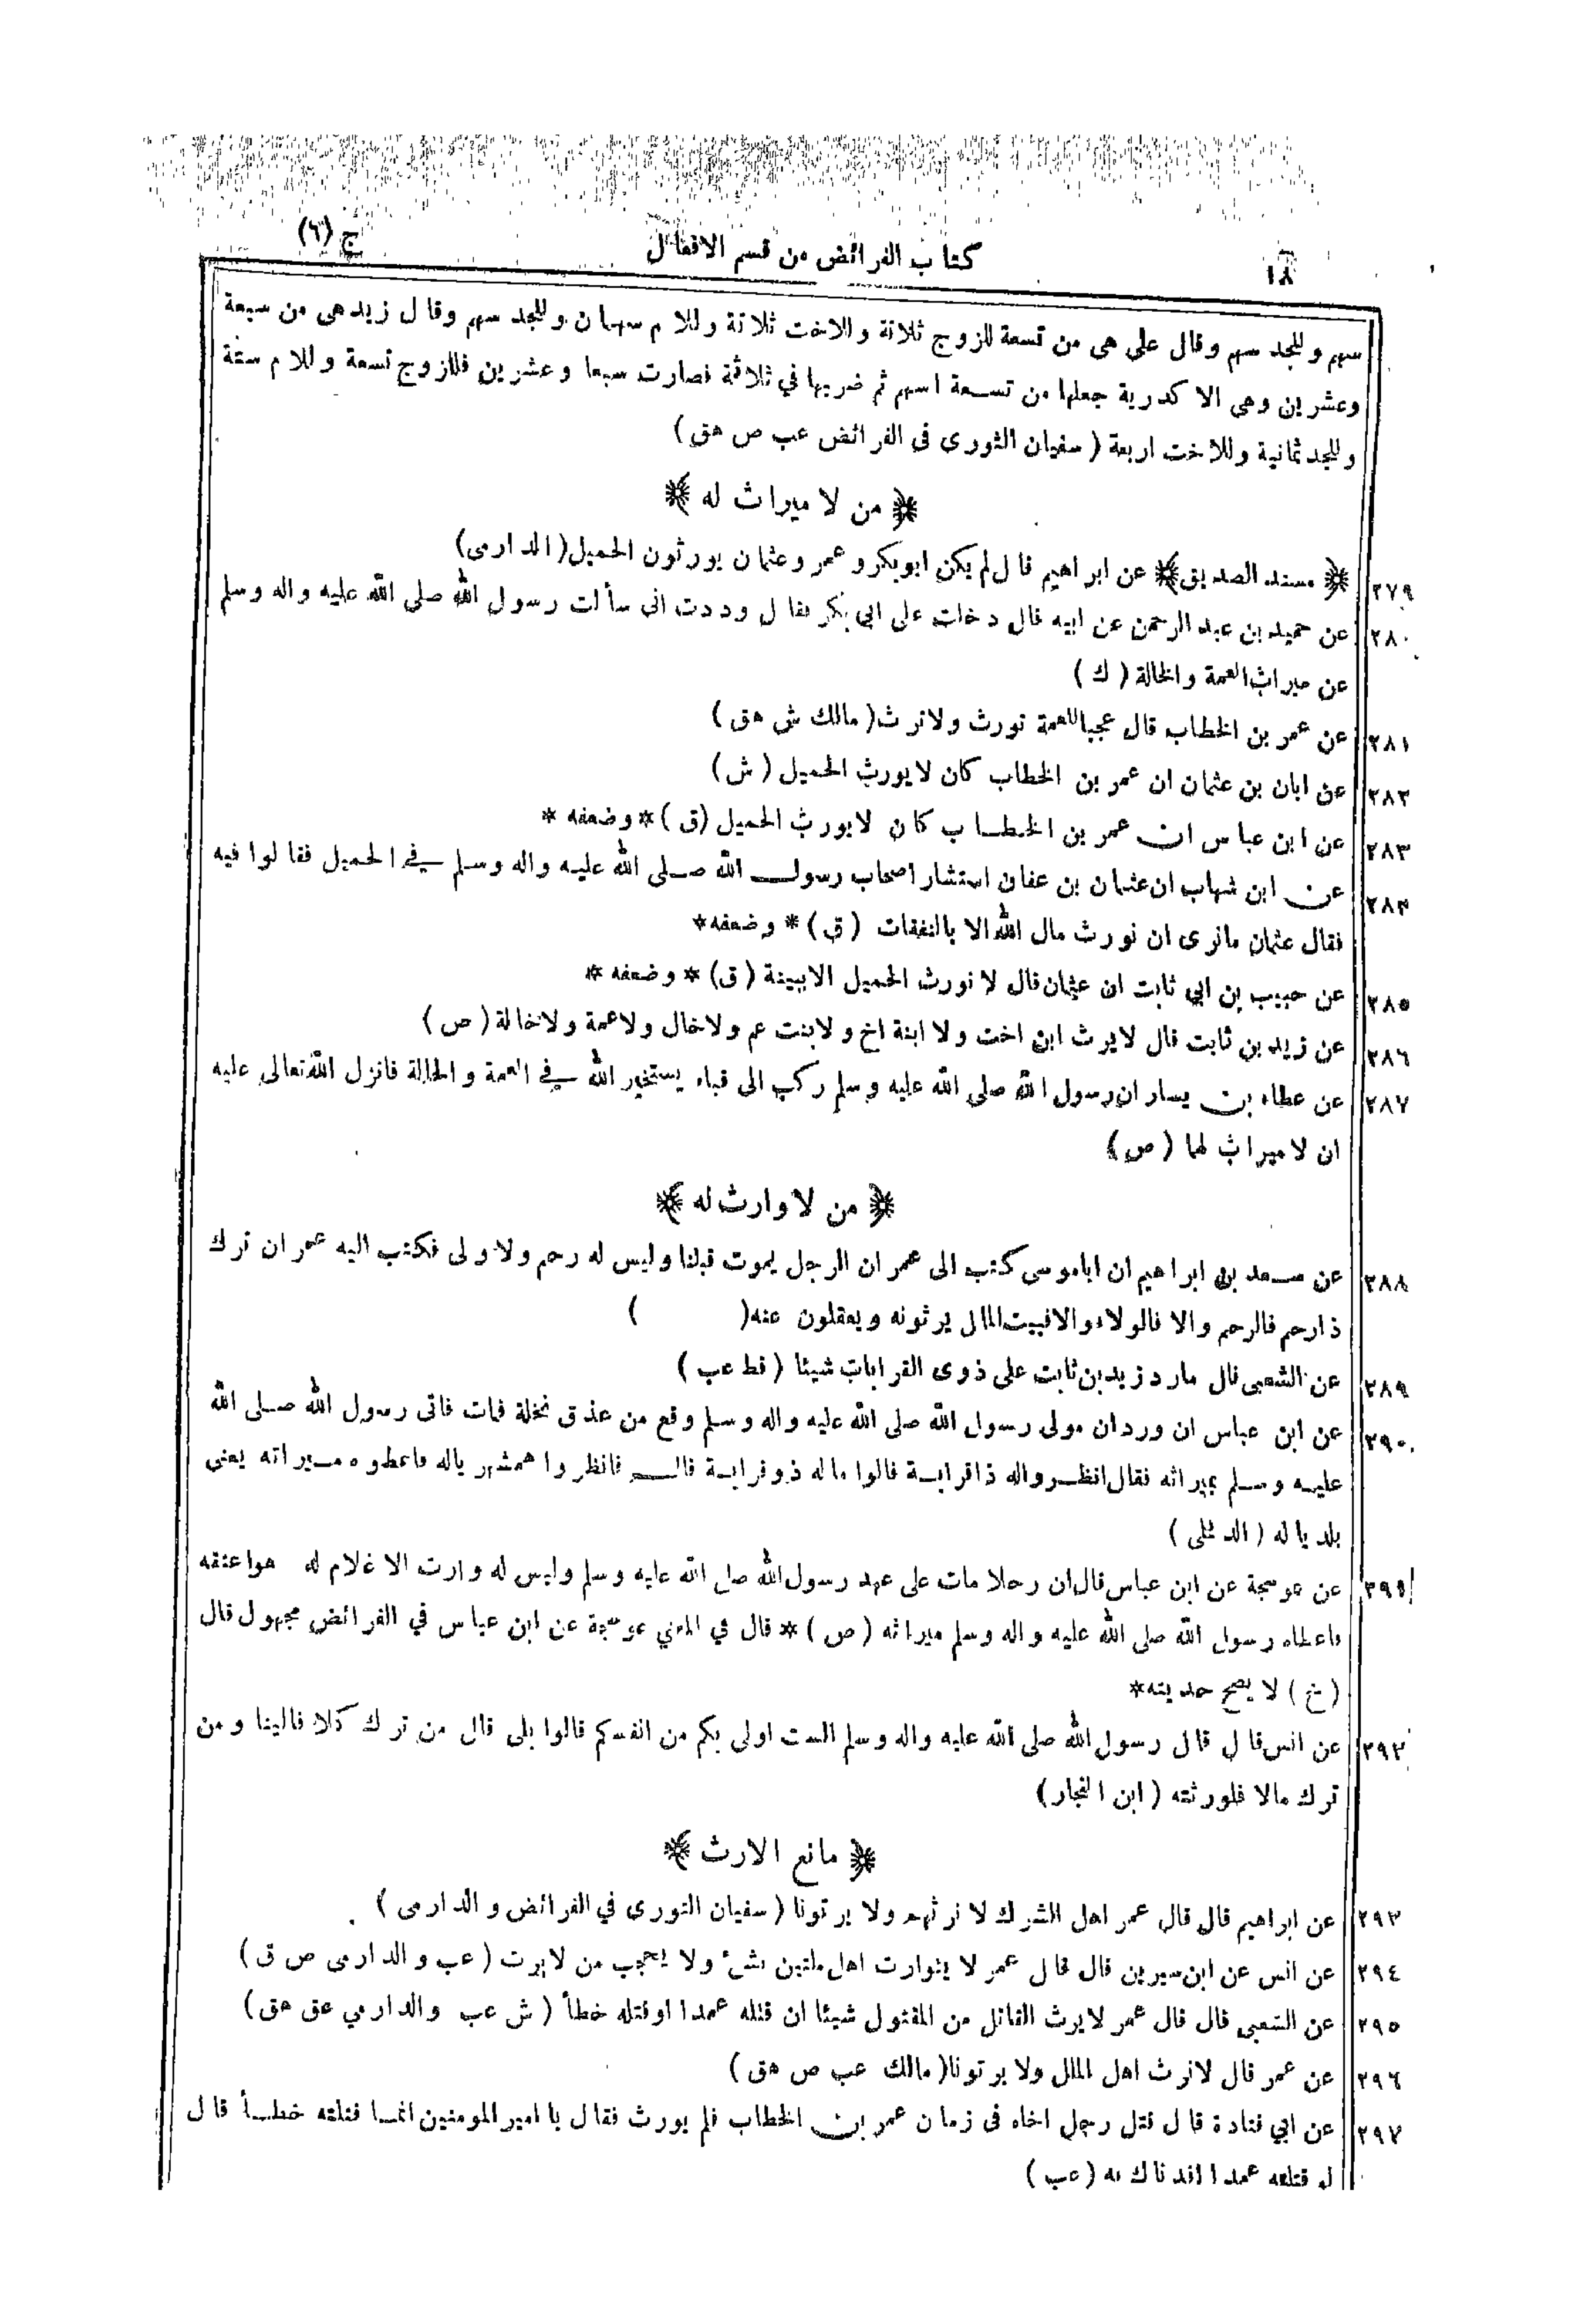 ١٨ كتاب الفرائض من قسم الافعال ج (٦)
سهم وللجد سهم وقال على هى من تسعة للزوج ثلاثة وللاخت ثلاثة وللام سهمان وللجد سهم وقال زيد هى من سبعة
وعشرين وهى الاكدرية جعلها من تسعة اسهم ثم ضربها في ثلاثة فصارت سبعا وعشرين فللزوج تسعة وللام ستة
وللجد ثمانية وللاخت اربعة ( سفيان الثورى فى الفرائض عب ص هق )
﴿ من لا ميراث له ﴾
٢٧٩ ﴿ مسند الصديق ﴾ عن ابراهيم قال لم يكن ابوبكر وعمر وعثمان يورثون الحميل ( الدارمى )
٢٨٠ عن حميد بن عبد الرحمن عن ابيه قال دخلت على ابى بكر فقال وددت انى سألت رسول الله صلى الله عليه واله وسلم
عن ميراث العمة والخالة ( ك )
٢٨١ عن عمر بن الخطاب قال عجبا للعمة تورث ولا ترث ( مالك ش هق )
٢٨٢ عن ابان بن عثمان ان عمر بن الخطاب كان لا يورث الحميل ( ش )
٢٨٣ عن ابن عباس ان عمر بن الخطاب كان لا يورث الحميل ( ق ) * وضعفه *
٢٨٤ عن ابن شهاب ان عثمان بن عفان استشار اصحاب رسول الله صلى الله عليه واله وسلم في الحميل فقالوا فيه
فقال عثمان مانرى ان نورث مال الله الا بالنفقات ( ق ) * وضعفه *
٢٨٥ عن حبيب بن ابي ثابت ان عثمان قال لا نورث الحميل الا ببينة ( ق ) * وضعفه *
٢٨٦ عن زيد بن ثابت قال لا يرث ابن اخت ولا ابنة اخ ولا بنت عم ولا خال ولا عمة ولا خالة ( ص )
٢٨٧ عن عطاء بن يسار ان رسول الله صلى الله عليه وسلم ركب الى قباء يستخير الله في العمة والخالة فانزل الله تعالى عليه
ان لا ميراث لهما ( ص )
﴿ من لا وارث له ﴾
٢٨٨ عن سعد بن ابراهيم ان اباموسى كتب الى عمر ان الرجل يموت قبلنا وليس له رحم ولا ولى فكتب اليه عمر ان ترك
ذا رحم فالرحم والا فالولاء والا فبيت المال يرثونه ويعقلون عنه ( )
٢٨٩ عن الشعبى قال مارد زيد بن ثابت على ذوى القرابات شيئا ( قط عب )
٢٩٠ عن ابن عباس ان وردان مولى رسول الله صلى الله عليه واله وسلم وقع من عذق نخلة فمات فاتى رسول الله صلى الله
عليه وسلم بميراثه فقال انظروا له ذا قرابة قالوا ماله ذو قرابة قال فانظروا همشهرياله فاعطوه ميراثه يعنى
بلديا له ( الديلمى )
٢٩١ عن عوسجة عن ابن عباس قال ان رجلا مات على عهد رسول الله صلى الله عليه وسلم وليس له وارث الا غلام له هو اعتقه
فاعطاه رسول الله صلى الله عليه واله وسلم ميراثه ( ص ) * قال في المغني عوسجة عن ابن عباس في الفرائض مجهول قال
( خ ) لا يصح حديثه *
٢٩٢ عن انس قال قال رسول الله صلى الله عليه واله وسلم الست اولى بكم من انفسكم قالوا بلى قال من ترك كلا فالينا ومن
ترك مالا فلورثته ( ابن النجار )
﴿ مانع الارث ﴾
٢٩٣ عن ابراهيم قال قال عمر اهل الشرك لا نرثهم ولا يرثونا ( سفيان الثورى في الفرائض والدارمى )
٢٩٤ عن انس عن ابن سيرين قال قال عمر لا يتوارث اهل ملتين شئ ولا يحجب من لا يرث ( عب والدارمى ص ق )
٢٩٥ عن الشعبى قال قال عمر لا يرث القاتل من المقتول شيئا ان قتله عمدا او قتله خطأ ( ش عب والدارمي عق هق )
٢٩٦ عن عمر قال لا نرث اهل الملل ولا يرثونا ( مالك عب ص هق )
٢٩٧ عن ابي قتادة قال قتل رجل اخاه فى زمان عمر بن الخطاب فلم يورث فقال يا امير المومنين انما قتلته خطأ قال
لو قتلته عمدا اقدناك به ( عب )